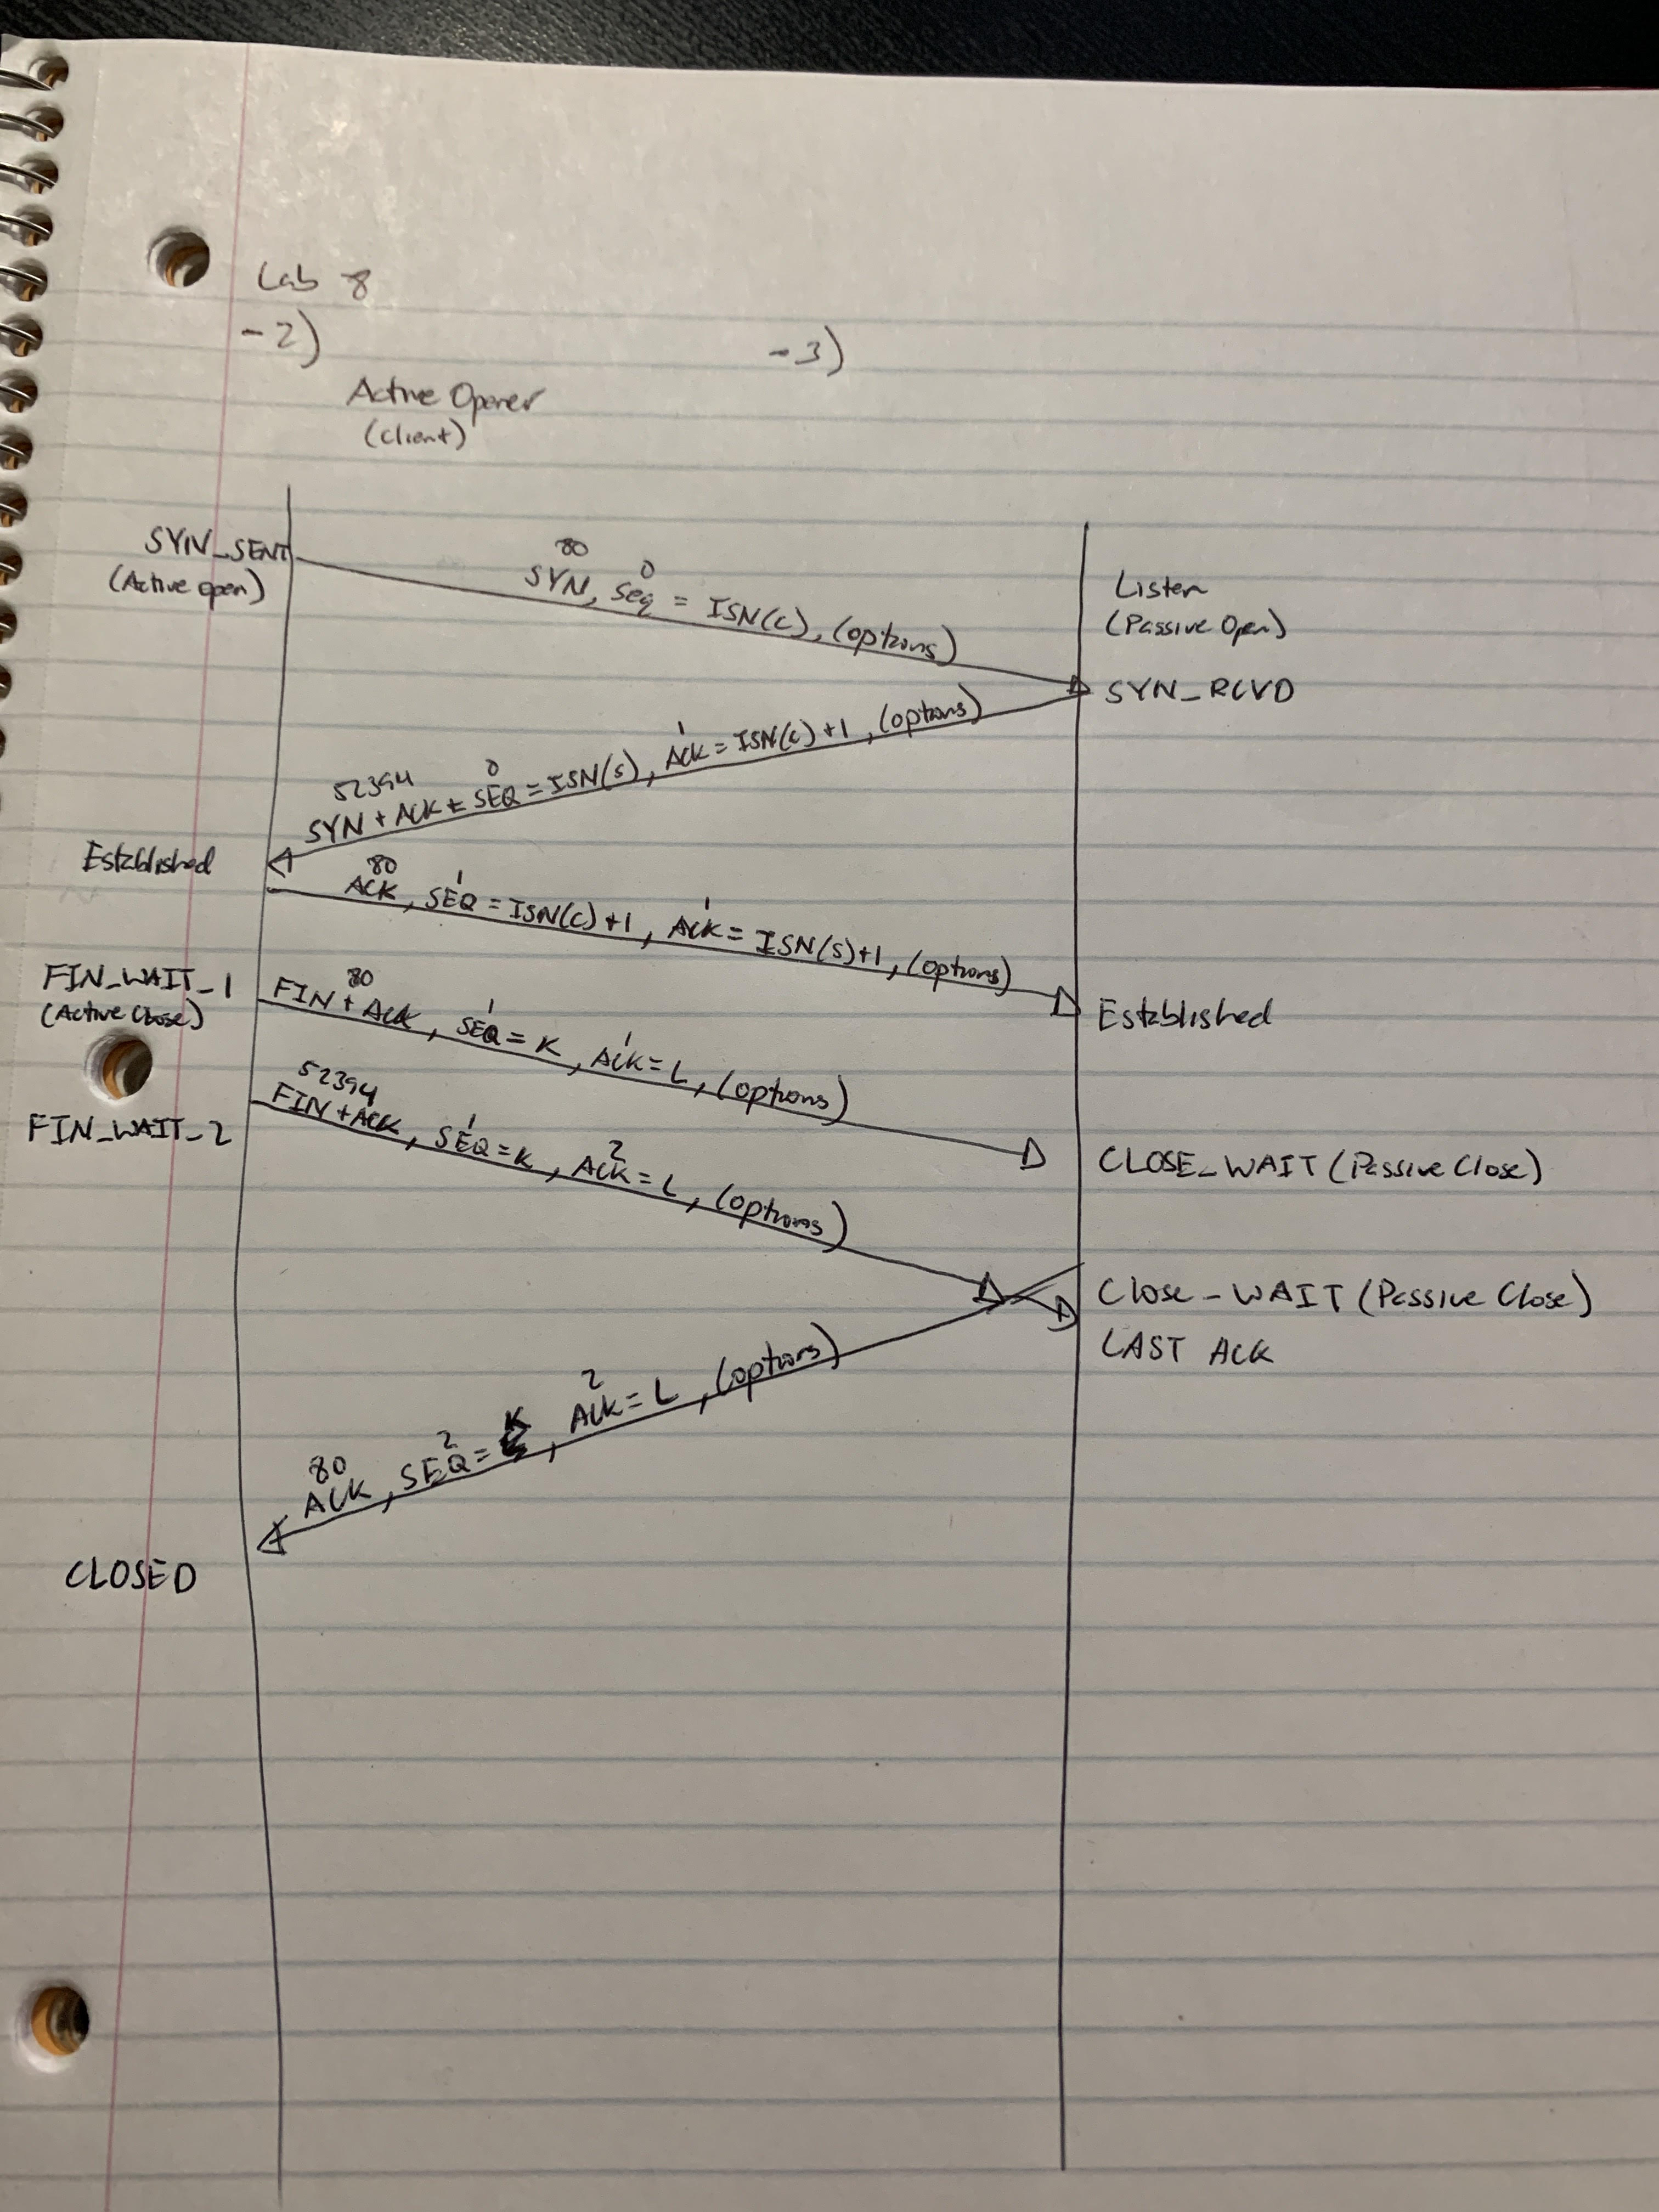 Lab 8
-2)
-3)
Active Opener
(client)
SYN_SENT
(Active open)
80
0
SYN, Seq = ISN(c), (options)
Listen
(Passive Open)
SYN_RCVD
52394
0
1
SYN + ACK + SEQ = ISN(s), ACK = ISN(c) +1, (options)
Established
80
1
1
ACK, SEQ = ISN(c) +1, ACK = ISN(s)+1, (options)
Established
FIN_WAIT_1
(Active Close)
80
1
1
FIN + ACK, SEQ = K, ACK = L, (options)
CLOSE_WAIT (Passive Close)
FIN_WAIT_2
52394
1
2
FIN + ACK, SEQ = K, ACK = L, (options)
Close_WAIT (Passive Close)
LAST ACK
80
2
2
ACK, SEQ = K, ACK = L, (options)
CLOSED